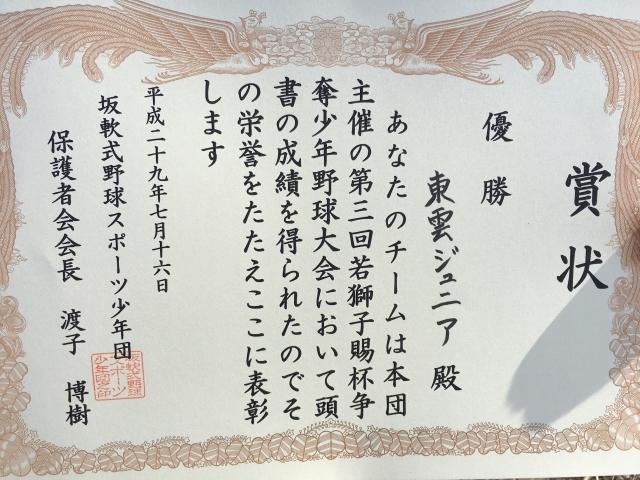 賞状
優勝
東雲ジュニア殿
あなたのチームは本団
主催の第三回若獅子賜杯争
奪少年野球大会において頭
書の成績を得られたのでそ
の栄誉をたたえここに表彰
します
平成二十九年七月十六日
坂軟式野球スポーツ少年団
保護者会会長 渡子 博樹
坂軟式野球
スポーツ
少年団之印